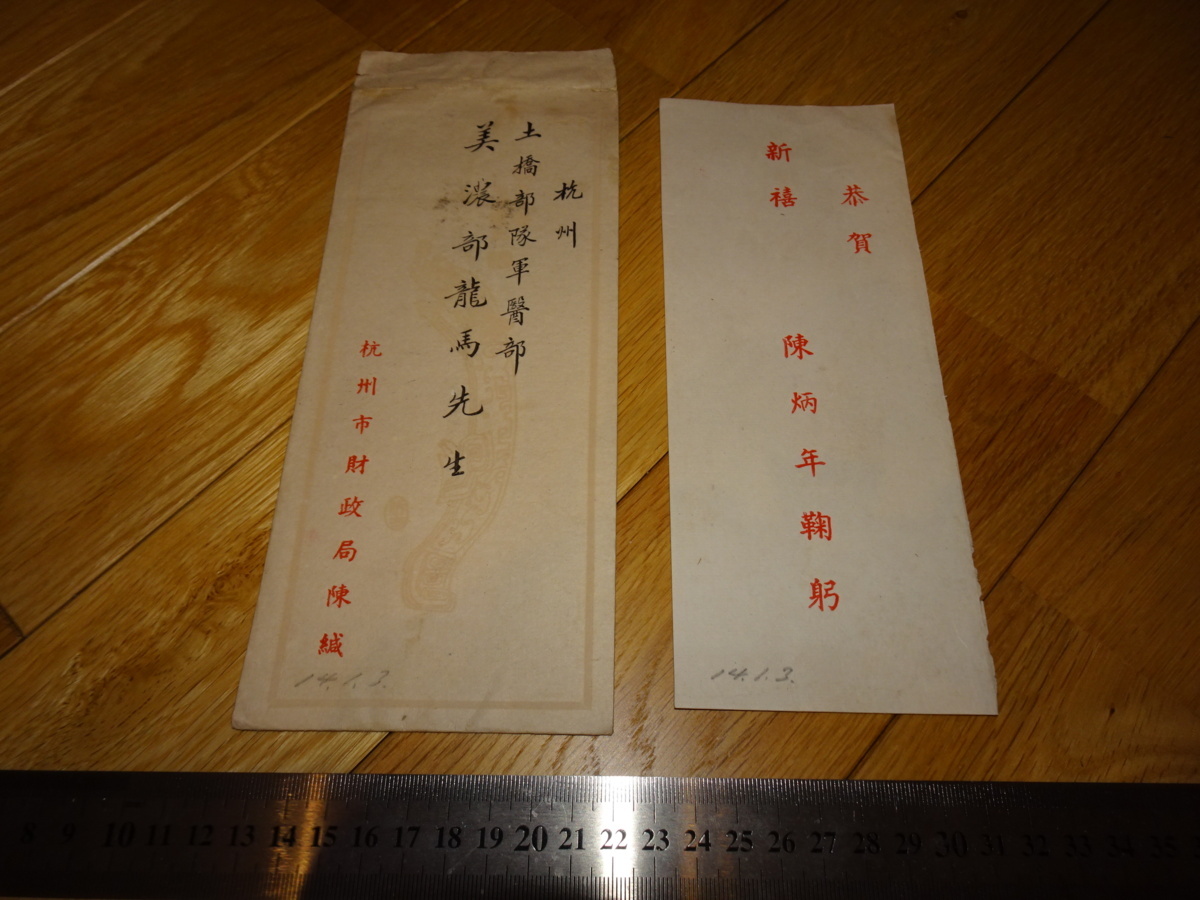 杭州
土橋部隊軍醫部
美濃部龍馬先生
杭州市財政局陳緘
14.1.3.
恭賀
新禧
陳炳年鞠躬
14.1.3.
8 9 10 11 12 13 14 15 16 17 18 19 20 21 22 23 24 25 26 27 28 29 30 31 32 33 34 35